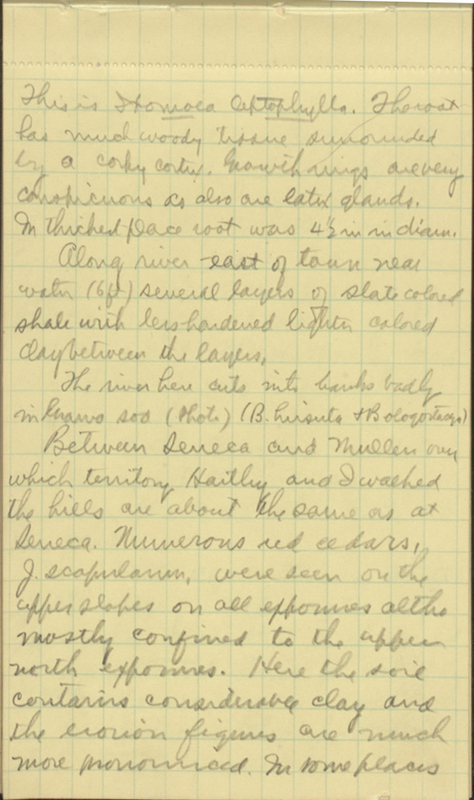 This is Ipomoea leptophylla. The root
has much woody tissue surrounded
by a corky cortex. Growth rings are very
conspicuous as also are latex glands.
In thickest place root was 4½ in in diam.
Along river east of town near
water (6ft) several layers of slate colored
shale with less hardened lighter colored
clay between the layers.
The river here cuts into banks badly
in grama sod (Photo) (B. hirsuta + B oligostachya)
Between Seneca and Mullen over
which territory Hartley and I walked
the hills are about the same as at
Seneca. Numerous red cedars,
J. scopulorum, were seen on the
upper slopes on all exposures altho
mostly confined to the upper
north exposures. Here the soil
contains considerable clay and
the erosion figures are much
more pronounced. In some places